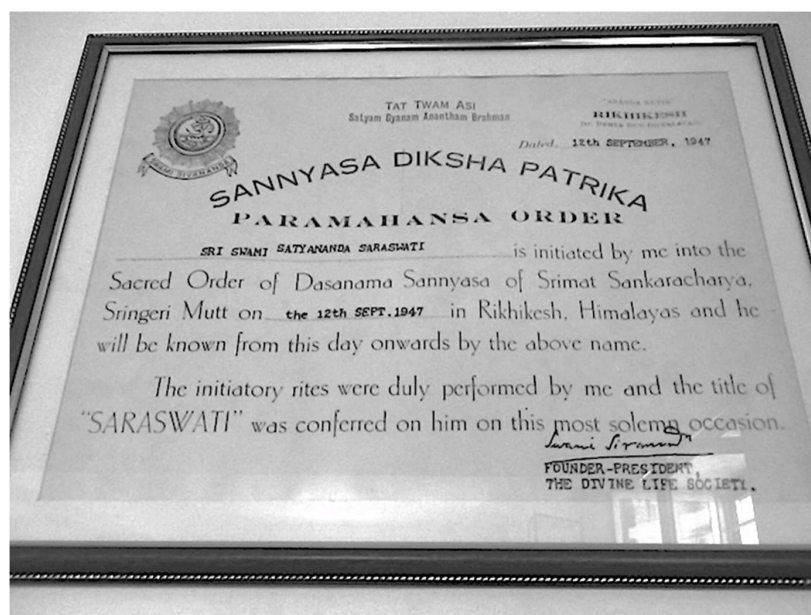 TAT TWAM ASI
Satyam Gyanam Anantham Brahman
"ANANDA KUTIR"
RIKHIKESH
Dated, 12th SEPTEMBER, 1947
SWAMI SIVANANDA
SANNYASA DIKSHA PATRIKA
PARAMAHANSA ORDER
SRI SWAMI SATYANANDA SARASWATI is initiated by me into the
Sacred Order of Dasanama Sannyasa of Srimat Sankaracharya,
Sringeri Mutt on the 12th SEPT.1947 in Rikhikesh, Himalayas and he
will be known from this day onwards by the above name.
The initiatory rites were duly performed by me and the title of
"SARASWATI" was conferred on him on this most solemn occasion.
Swami Sivananda
FOUNDER-PRESIDENT,
THE DIVINE LIFE SOCIETY.